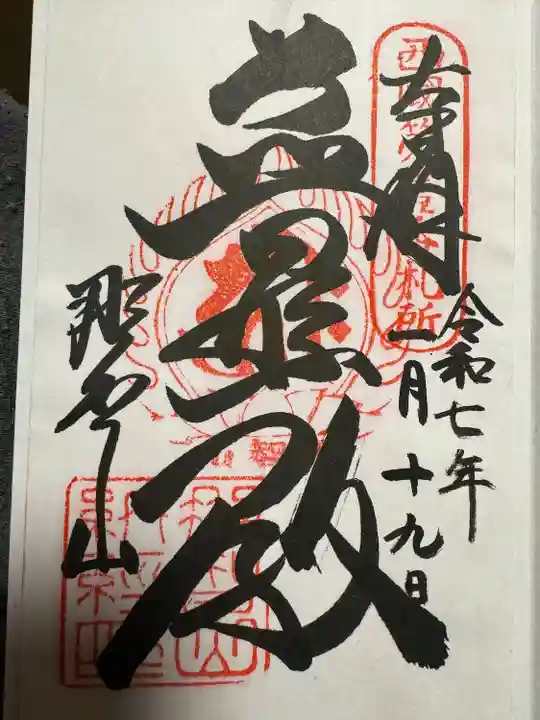 奉拝
西國第一番札所
令和七年
一月十九日
普照殿
那智山